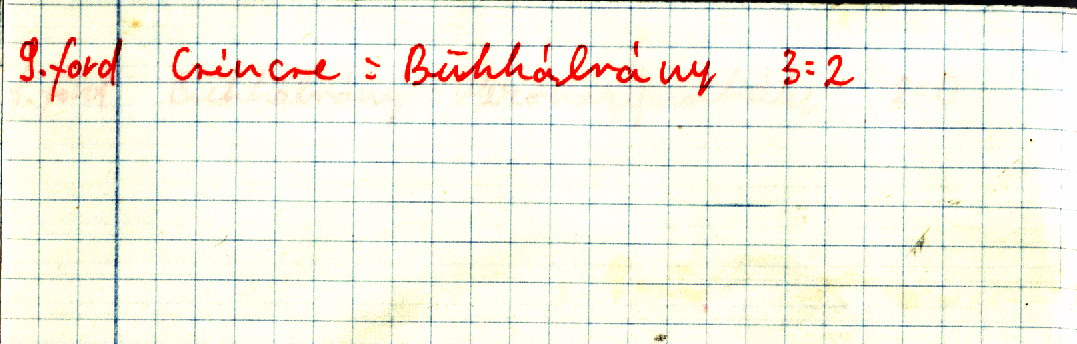 9. ford Csincse : Bükkábrány 3:2